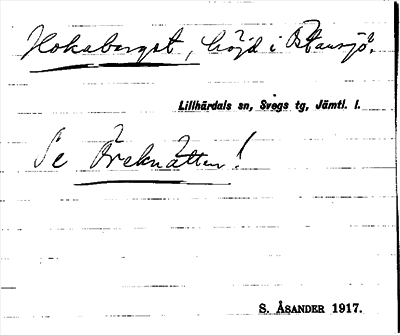 Hoksberget, höjd i Östansjö.
Lillhärdals sn, Svegs tg, Jämtl. l.
Se Örsknätten!
S. ÅSANDER 1917.